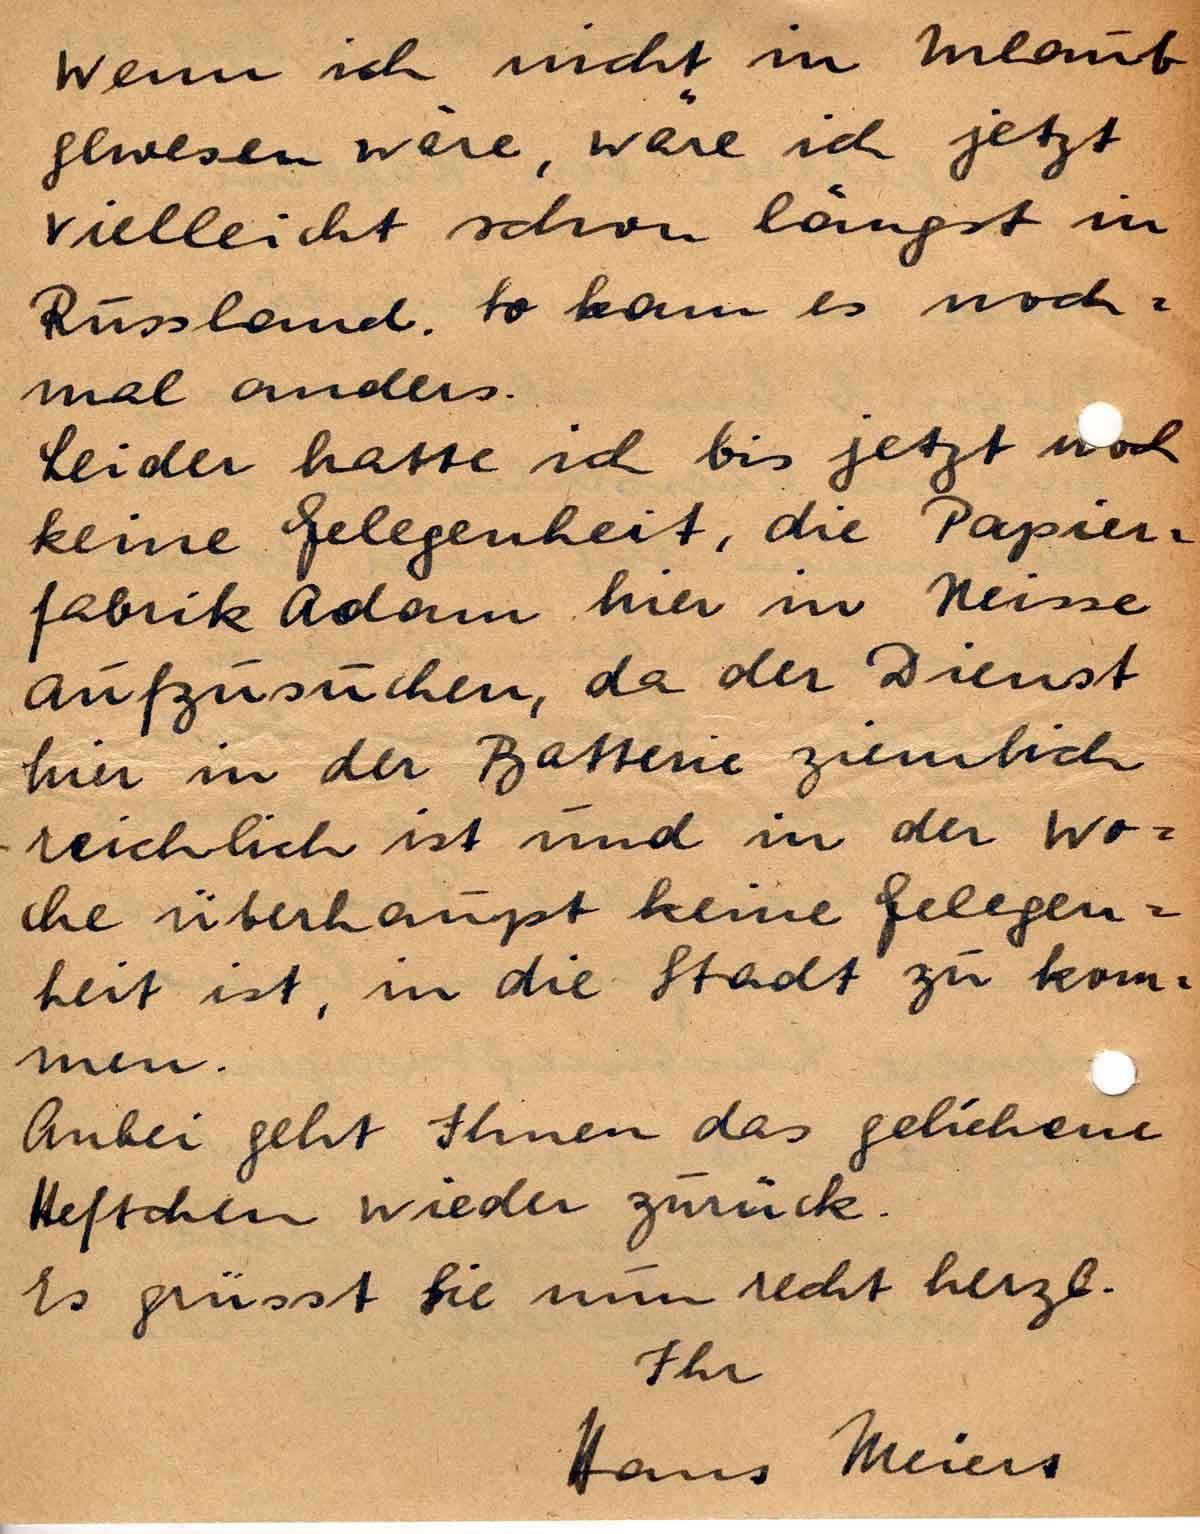 Wenn ich nicht in Urlaub
gewesen wäre, wäre ich jetzt
vielleicht schon längst in
Russland. So kam es noch=
mal anders.
Leider hatte ich bis jetzt noch
keine Gelegenheit, die Papier=
fabrik Adam hier in Neisse
aufzusuchen, da der Dienst
hier in der Batterie ziemlich
reichlich ist und in der Wo=
che überhaupt keine Gelegen=
heit ist, in die Stadt zu kom=
men.
Anbei geht Ihnen das geliehene
Heftchen wieder zurück.
Es grüsst Sie nun recht herzl.
Ihr
Hans Meiers